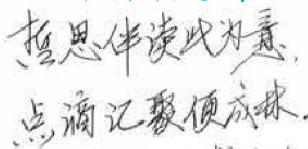 哲思伴读此为意,
点滴记聚便成球.